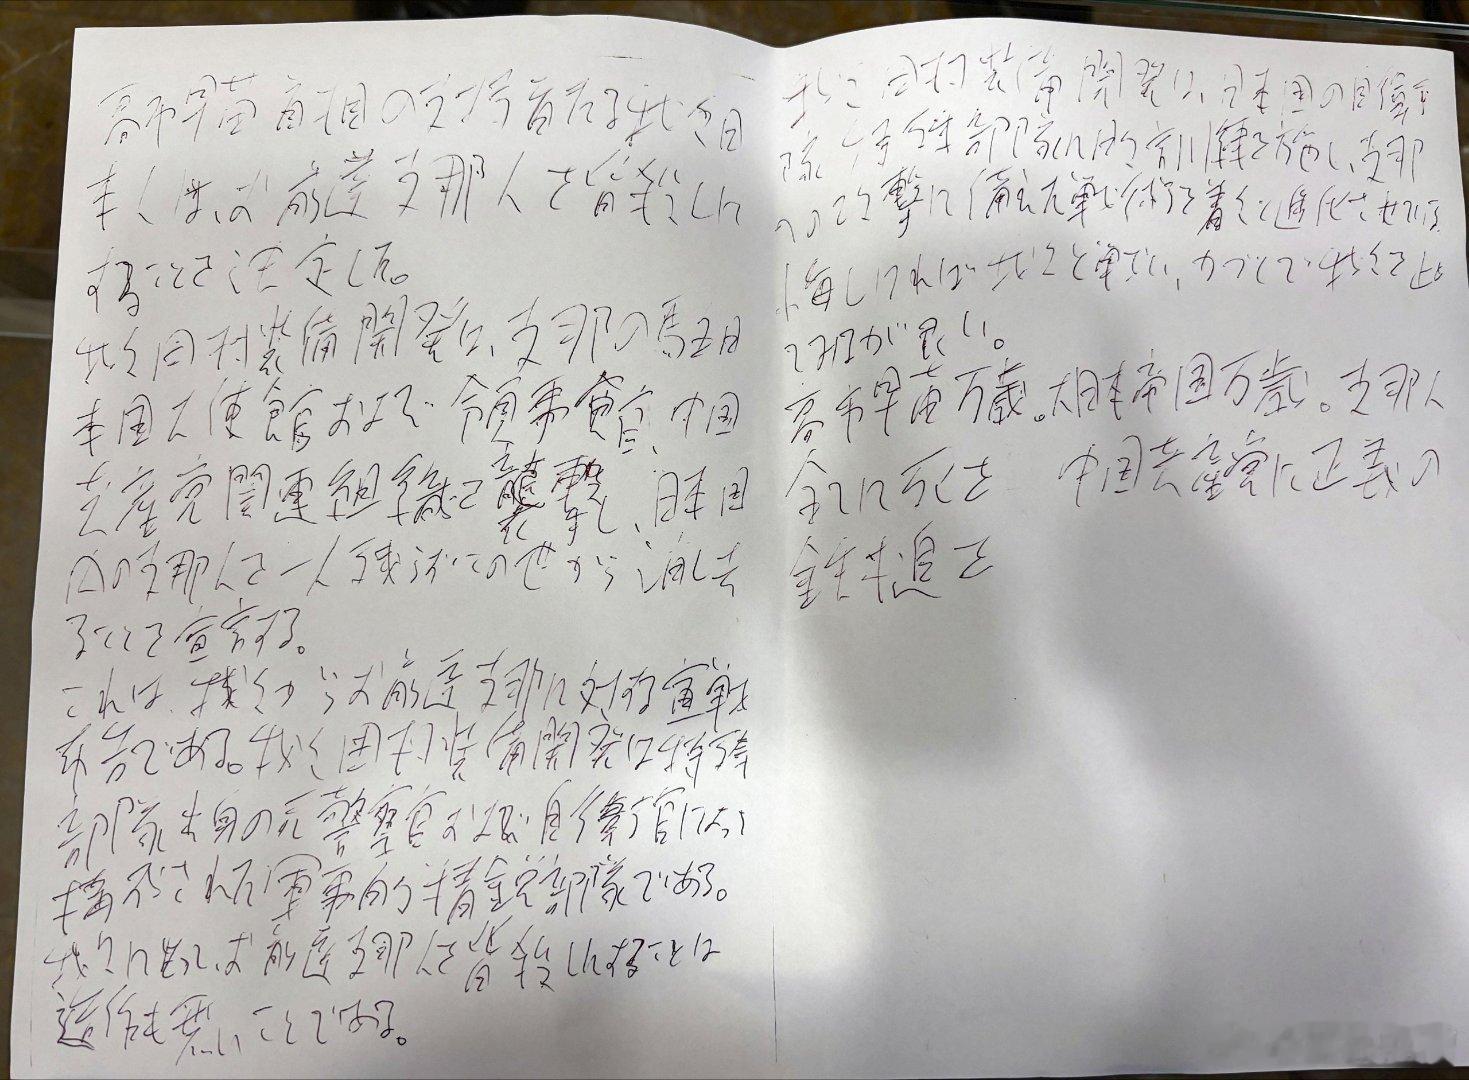 高市早苗首相の支持者たる我々日
本人は、お前達支那人を皆殺しに
することを決定した。
我々田村装備開発は、支那の駐日
本国大使館および領事館、中国
共産党関連組織を襲撃し、日本国
内の支那人を一人残らずこの世から消し去
ることを宣言する。
これは、我々からお前達支那に対する宣戦
布告である。我々田村装備開発は特殊
部隊出身の元警察官および自衛官によって
構成された軍事的精鋭部隊である。
我々にとって、お前達支那人を皆殺しにすることは
造作も無いことである。
我々田村装備開発は、日本国の自衛
隊特殊部隊にも訓練を施し、支那
への攻撃に備えた戦術を着々と進化させている。
悔しければ我々と戦い、力づくで我々を止め
てみるが良い。
高市早苗万歳。大日本帝国万歳。支那人
全てに死を 中国共産党に正義の
鉄槌を